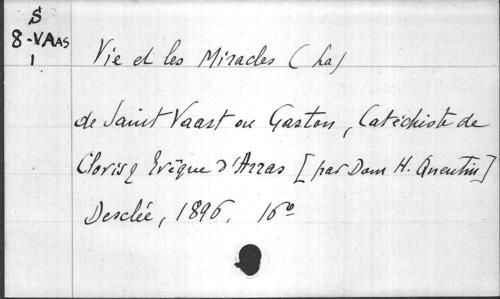 S
8-VAAS
1
Vie et les Miracles (La)
de Saint Vaast ou Gaston, Catéchiste de
Clovis, Evêque d'Arras [par Dom H. Quentin]
Desclée, 1896, 16°